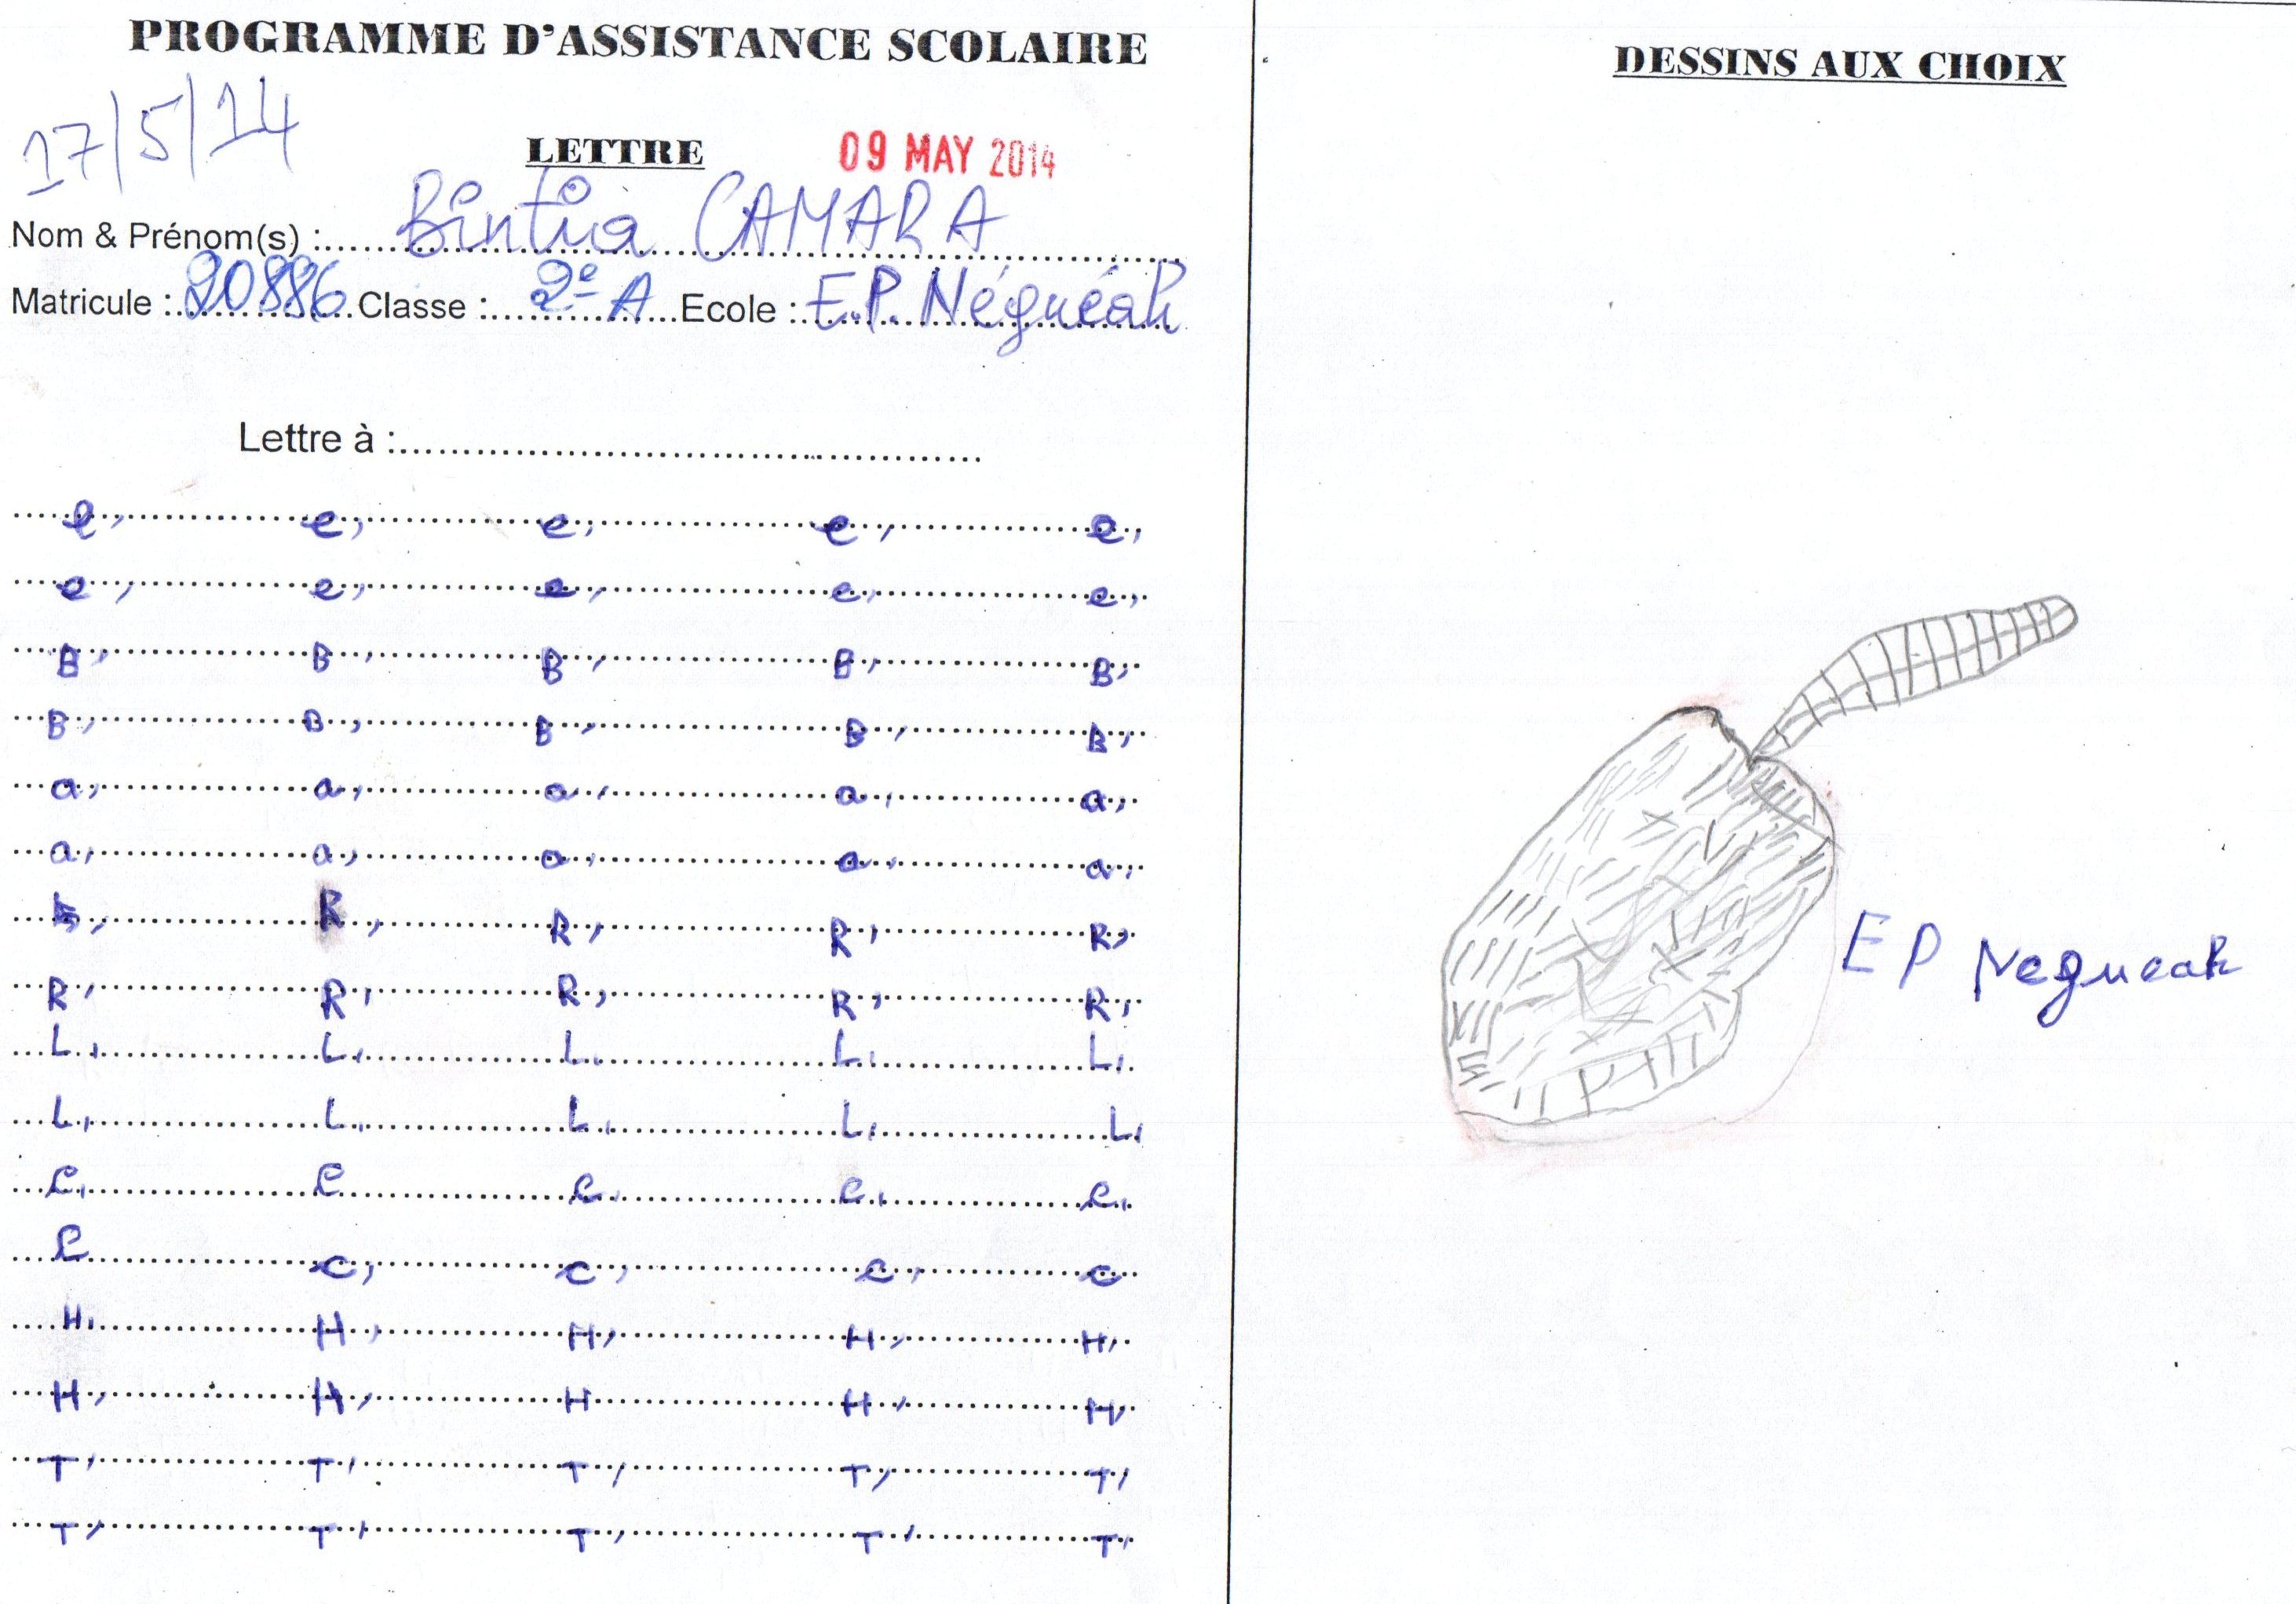 PROGRAMME D'ASSISTANCE SCOLAIRE
17/5/14
LETTRE 09 MAY 2014
Nom & Prénom(s) : Bintia CAMARA
Matricule : 20886 Classe : 2e A Ecole : E.P. Néguéah
Lettre à :
e, e, e, e, e,
e, e, e, e, e,
B, B, B, B, B,
B, B, B, B, B,
a, a, a, a, a,
a, a, a, a, a,
R, R, R, R,
R, R, R, R, R,
L, L, L, L, L,
L, L, L, L, L,
C, C C, C, C,
C C, C, C, C
H, H, H, H, H,
H, H, H H, H,
T, T, T, T, T,
T, T, T, T, T,
DESSINS AUX CHOIX
EP Negueah